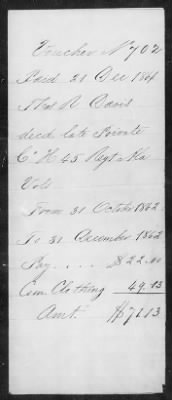 Voucher No 702
Paid 21 Dec 1864
Thos R Davis
decd late Private
C" H 45 Regt
Vols
From 31 October 1862
To 31 December 1862
Pay . . . . $22.00
Com Clothing 49.13
Amt. $71.13